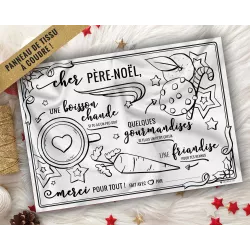 PANNEAU DE TISSU
À COUDRE !
cher PÈRE-NOËL,
UNE boisson
chaude
QUELQUES
gourmandises
UNE friandise
merci POUR TOUT ! FAIT AVEC PAR